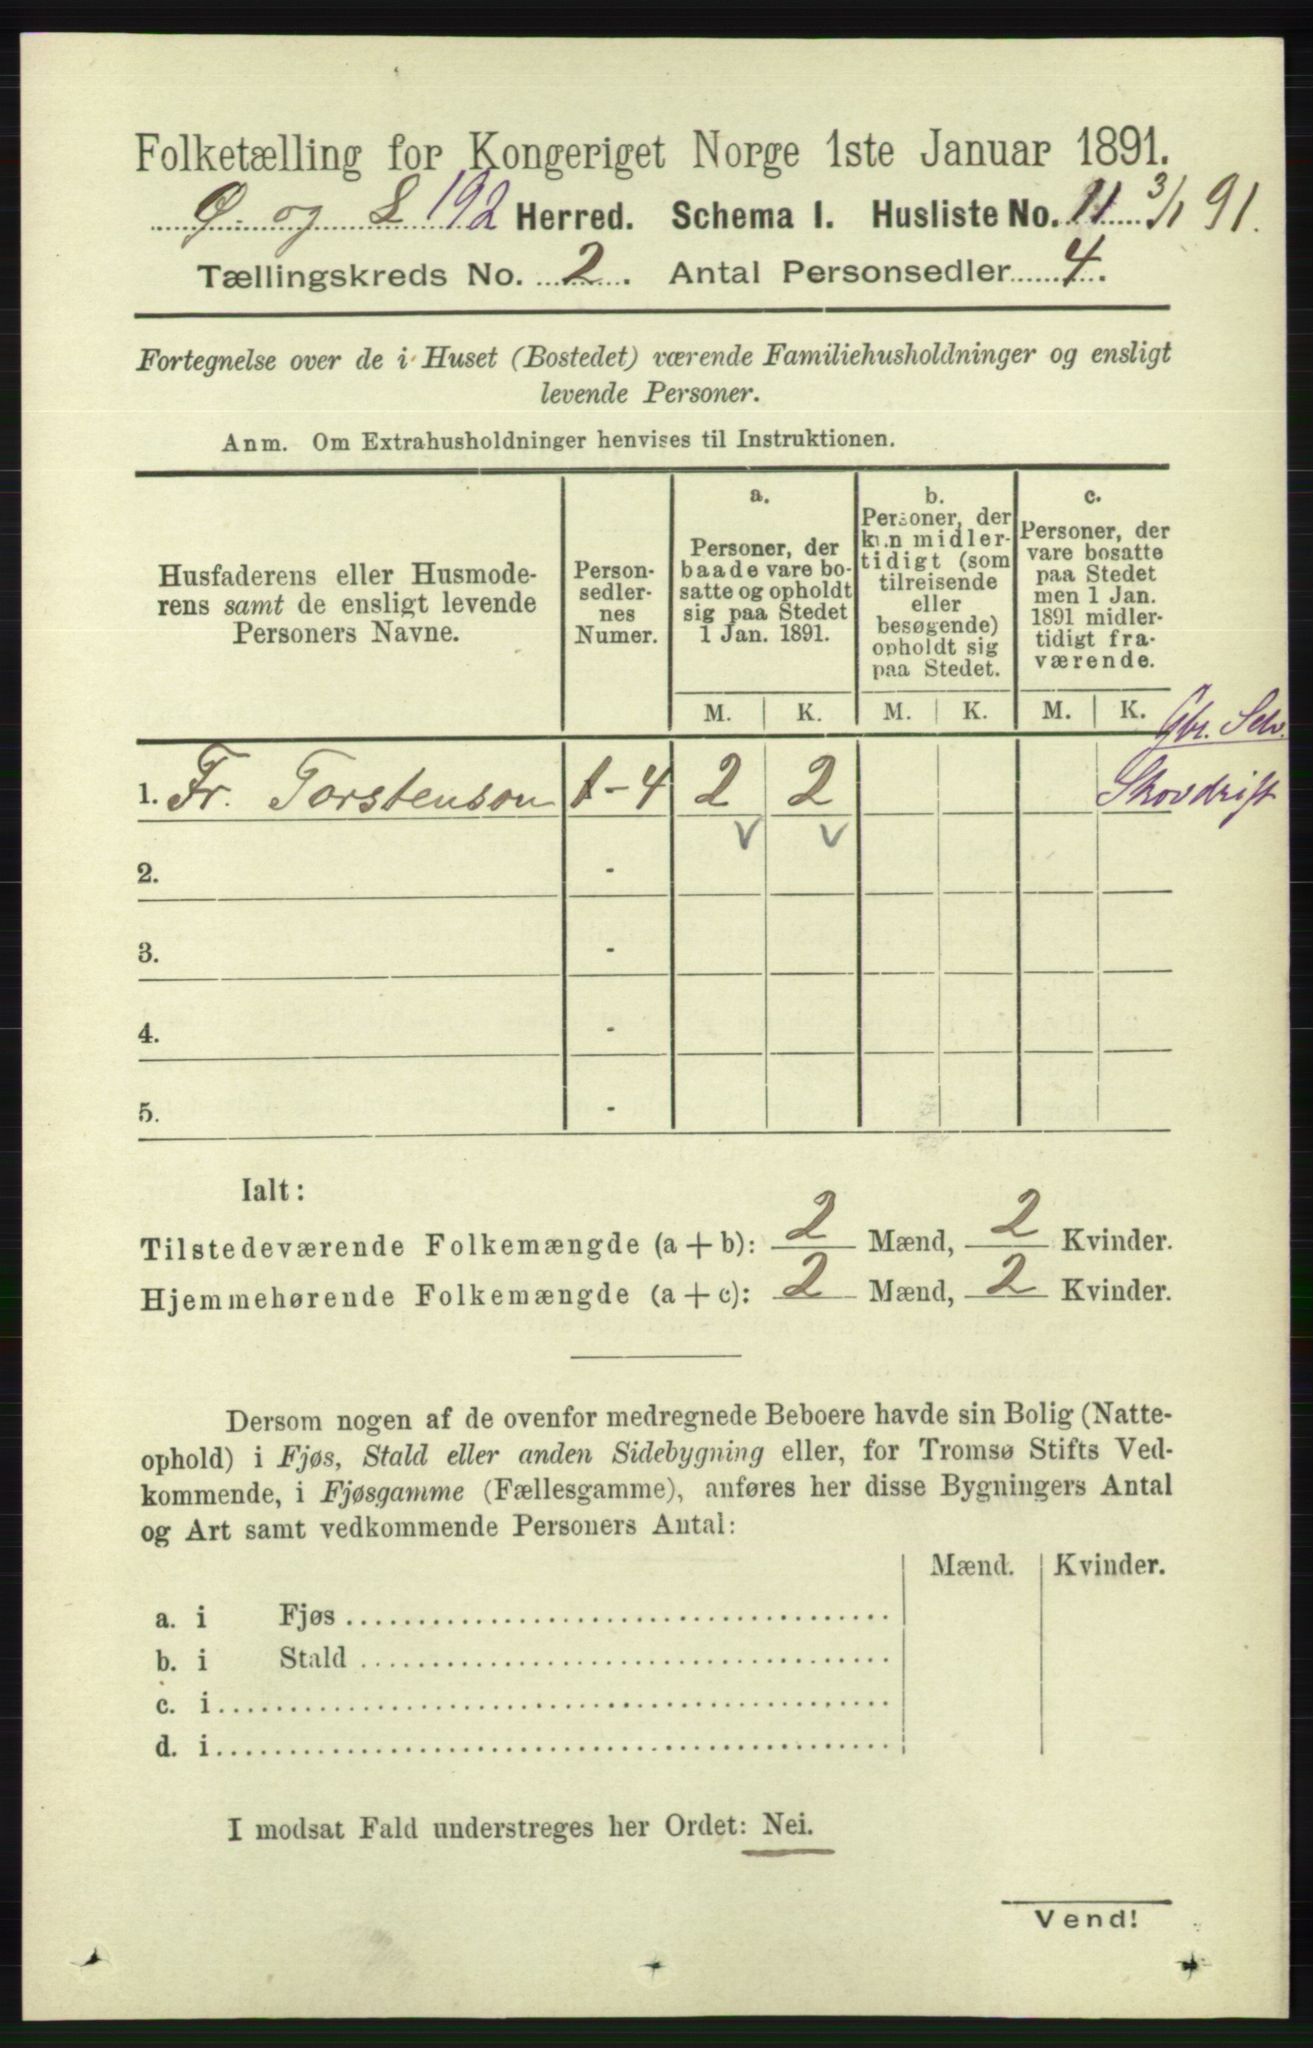 Folketælling for Kongeriget Norge 1ste Januar 1891.
Ø. og L 192 Herred. Schema I. Husliste No. 11 3/1 91.
Tællingskreds No. 2. Antal Personsedler 4.
Fortegnelse over de i Huset (Bostedet) værende Familiehusholdninger og ensligt
levende Personer.
Anm. Om Extrahusholdninger henvises til Instruktionen.
Husfaderens eller Husmode-
rens samt de ensligt levende
Personers Navne.
Person-
sedler-
nes
Numer.
a.
Personer, der
baade vare bo-
satte og opholdt
sig paa Stedet
1 Jan. 1891.
b.
Personer, der
kun midler-
tidigt (som
tilreisende
eller
besøgende)
opholdt sig
paa Stedet.
c.
Personer, der
vare bosatte
paa Stedet
men 1 Jan.
1891 midler-
tidigt fra-
værende.
M. K. M. K. M. K.
Gbr. Selv.
1. Fr. Torstenson 1-4 2 2 Skovdrift
v v
2. -
3. -
4. -
5. -
Ialt:
Tilstedeværende Folkemængde (a + b): 2 Mænd, 2 Kvinder.
Hjemmehørende Folkemængde (a + c): 2 Mænd, 2 Kvinder.
Dersom nogen af de ovenfor medregnede Beboere havde sin Bolig (Natte-
ophold) i Fjøs, Stald eller anden Sidebygning eller, for Tromsø Stifts Ved-
kommende, i Fjøsgamme (Fællesgamme), anføres her disse Bygningers Antal
og Art samt vedkommende Personers Antal:
Mænd. Kvinder.
a. i Fjøs
b. i Stald
c. i
d. i
I modsat Fald understreges her Ordet: Nei.
Vend!